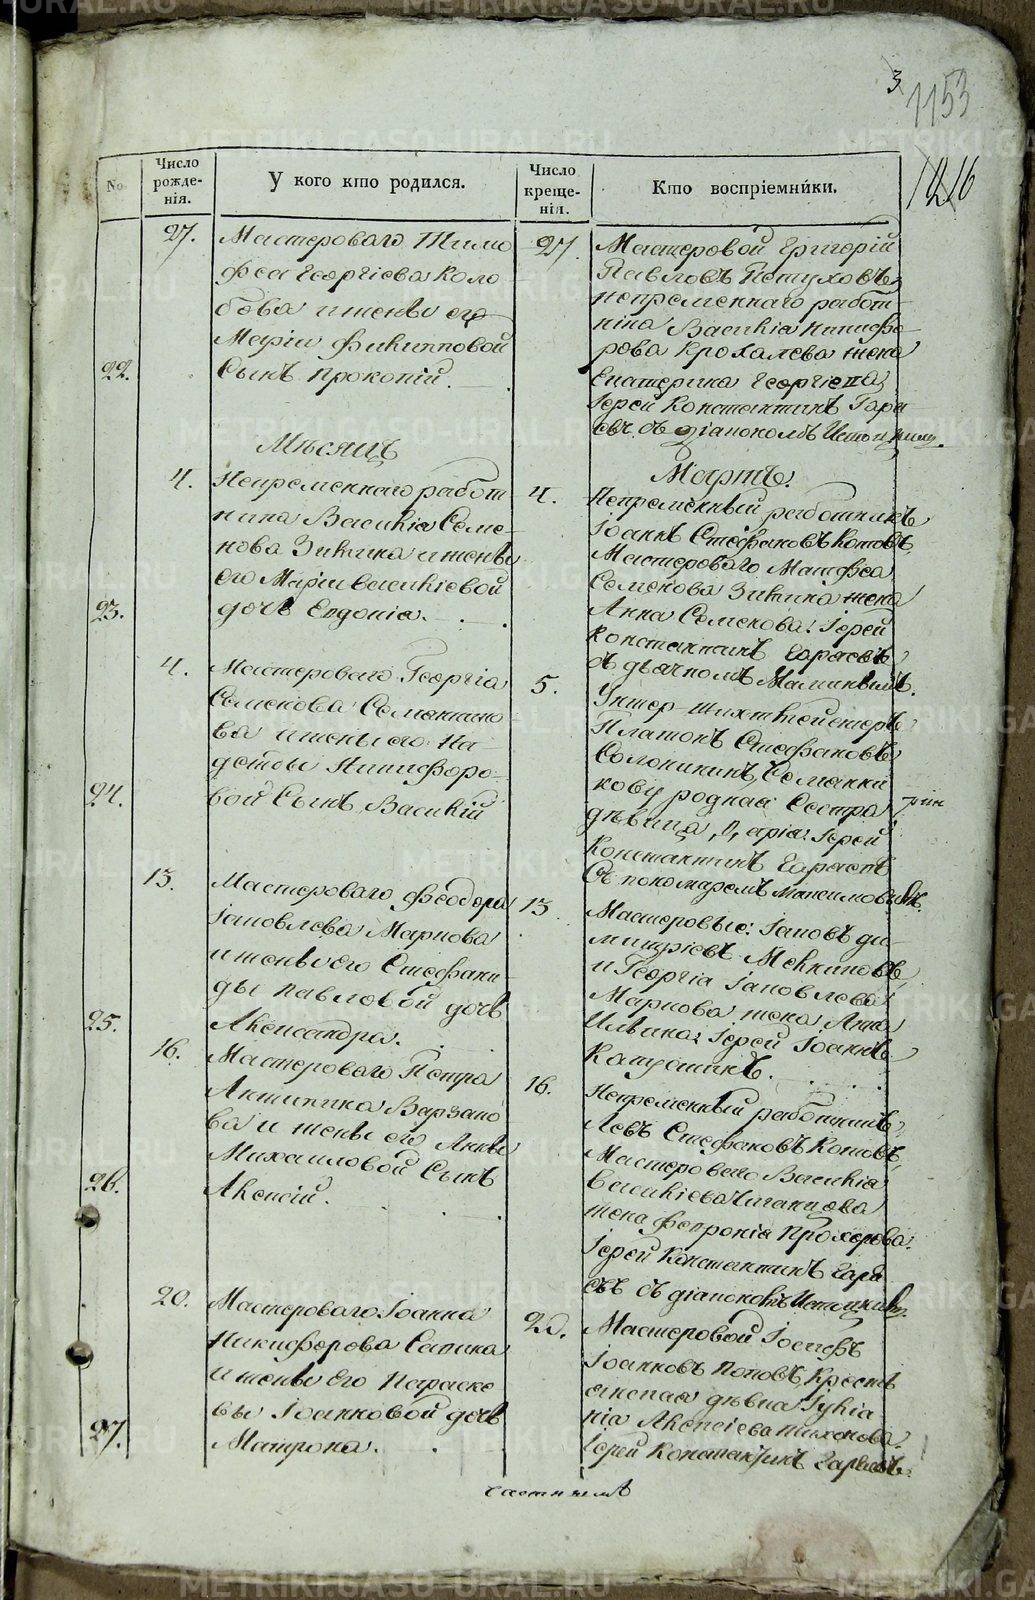 3
1153
1216
No
Число рожденія.
У кого кто родился.
Число крещенія.
Кто воспріемники.
22.
27.
Мастероваго Тимо
фея Георгіева Коло
бова и жены его
Маріи Филипповой
Сынъ Прокопій.
27.
Мастеровой Григорій
Павловъ Петуховъ,
непременнаго работ-
ника Василія Никифо-
рова Крохалева жена
Екатерина Георгіева,
Іерей Константинъ
съ діакономъ
Мѣсяцъ
Мартъ.
23.
4.
Непременнаго работ
ника Василія Семе-
нова Зыкина и жены
его Маріи Васильевой
дочь Евдокія.
4.
Непременный работникъ
Іоаннъ Стефановъ Котовъ
Мастероваго Матфея
Семенова Зыкина жена
Анна Семенова: Іерей
Константинъ
съ дьячкомъ Маминымъ.
24.
4.
Мастероваго Георгія
Семенова
ва и жены его На-
дежды Никифоро-
вой Сынъ Василій
5.
Унтер-шихтмейстеръ
Платонъ Стефановъ
родная Сестра
дѣвица Марія: Іерей
Константинъ
Съ пономаремъ
25.
13.
Мастероваго Феодора
Іаковлева Маркова
и жены его Стефани-
ды Павловой дочь
Александра.
13.
Мастеровые: Іаковъ Ди-
митріевъ
и Георгія Іаковлева
Маркова жена Анна
Ильина: Іерей Іоаннъ
Капустинъ.
26.
16.
Мастероваго Петра
Антипина Варзако
ва и жены его Анны
Михаиловой Сынъ
Алексій.
16.
Непременный работникъ
Левъ Стефановъ Котовъ,
Мастероваго Василія
Васильева
жена Февронія Прохорова.
Іерей Константинъ
съ діакономъ
27.
20.
Мастероваго Іоанна
Никифорова Сапина
и жены его Параске
вы Іоанновой дочь
Матрона.
20.
Мастеровой Іосифъ
Іоанновъ Поповъ, Кресть
янская дѣвка Іуліа
нія Алексіева Тихонова.
Іерей Константинъ
METRIKI.GASO-URAL.RU